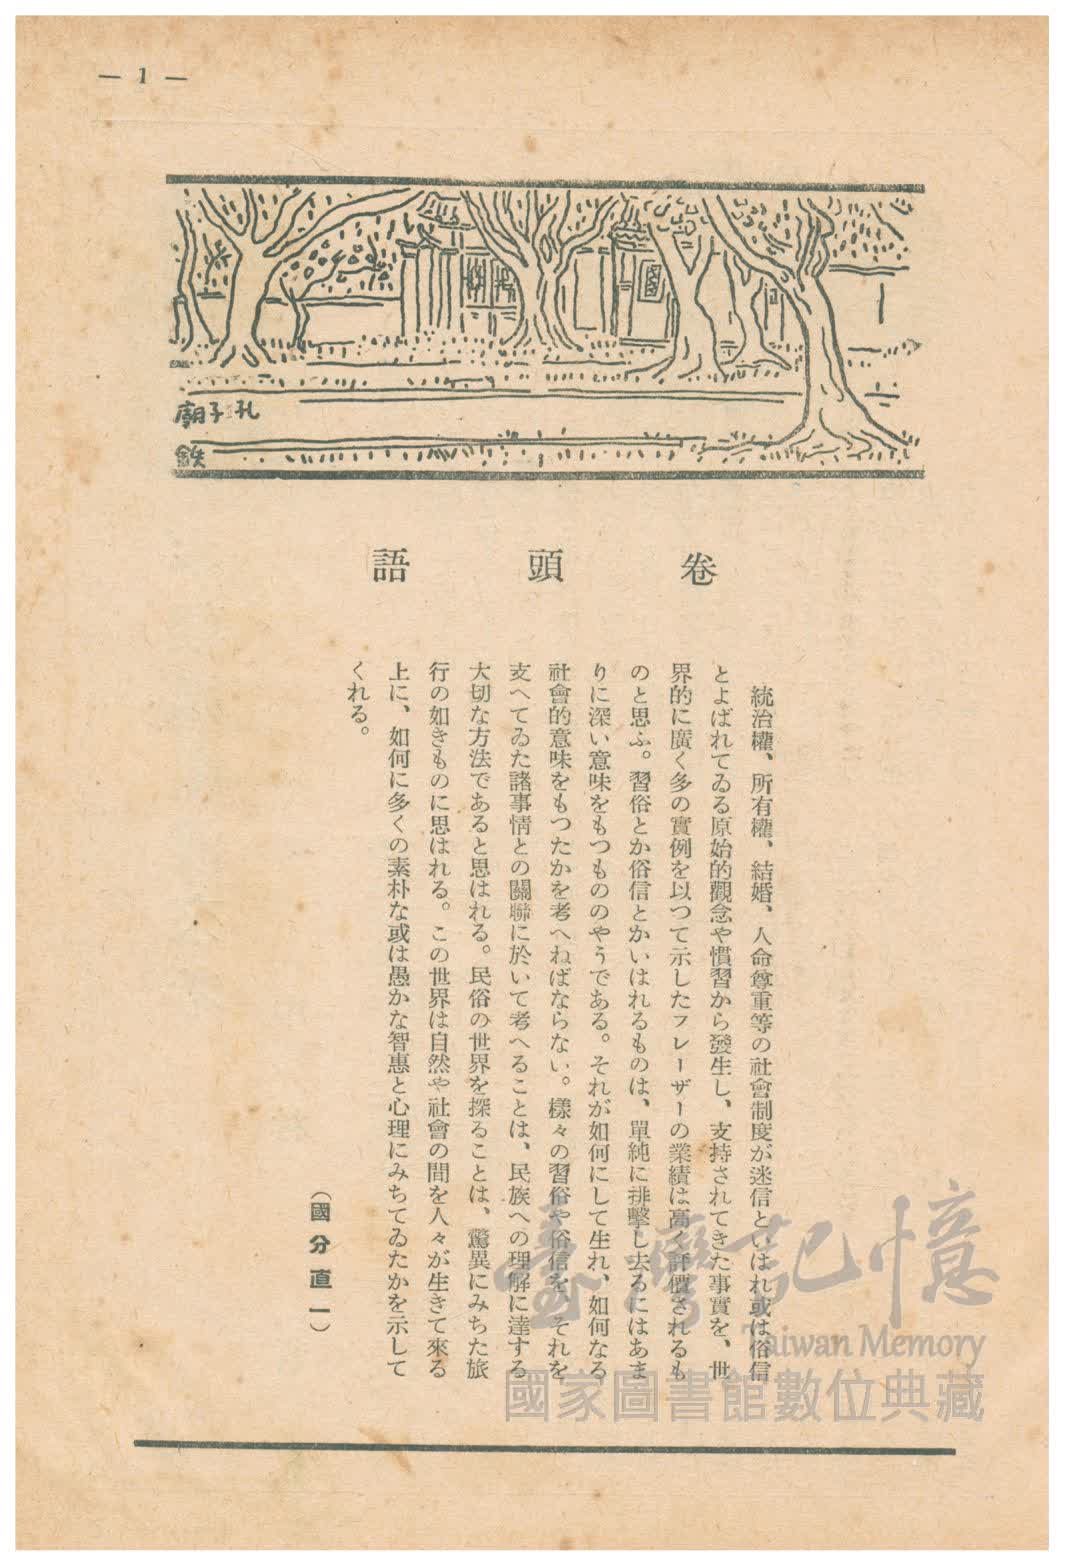 — 1 —
孔子廟
鉄
卷頭語
統治權、所有權、結婚、人命尊重等の社會制度が迷信といはれ或は俗信
とよばれてゐる原始的觀念や慣習から發生し、支持されてきた事實を、世
界的に廣く多の實例を以つて示したフレーザーの業績は高く評價されるも
のと思ふ。習俗とか俗信とかいはれるものは、單純に排擊し去るにはあま
りに深い意味をもつもののやうである。それが如何にして生れ、如何なる
社會的意味をもつたかを考へねばならない。樣々の習俗や俗信を、それを
支へてゐた諸事情との關聯に於いて考へることは、民族への理解に達する
大切な方法であると思はれる。民俗の世界を探ることは、驚異にみちた旅
行の如きものに思はれる。この世界は自然や社會の間を人々が生きて來る
上に、如何に多くの素朴な或は愚かな智惠と心理にみちてゐたかを示して
くれる。
（國分直一）
臺灣記憶
Taiwan Memory
國家圖書館數位典藏